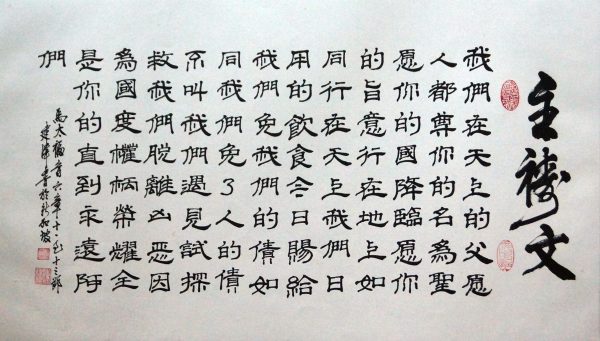 主禱文
我們在天上的父愿
人都尊你的名為聖
愿你的國降臨愿你
的旨意行在地上如
同行在天上我們日
用的飲食今日賜給
我們免我們的債如
同我們免了人的債
不叫我們遇見試探
救我們脫離凶惡因
為國度權柄榮耀全
是你的直到永遠阿
們
馬太福音六章十至十三節
書於新加坡